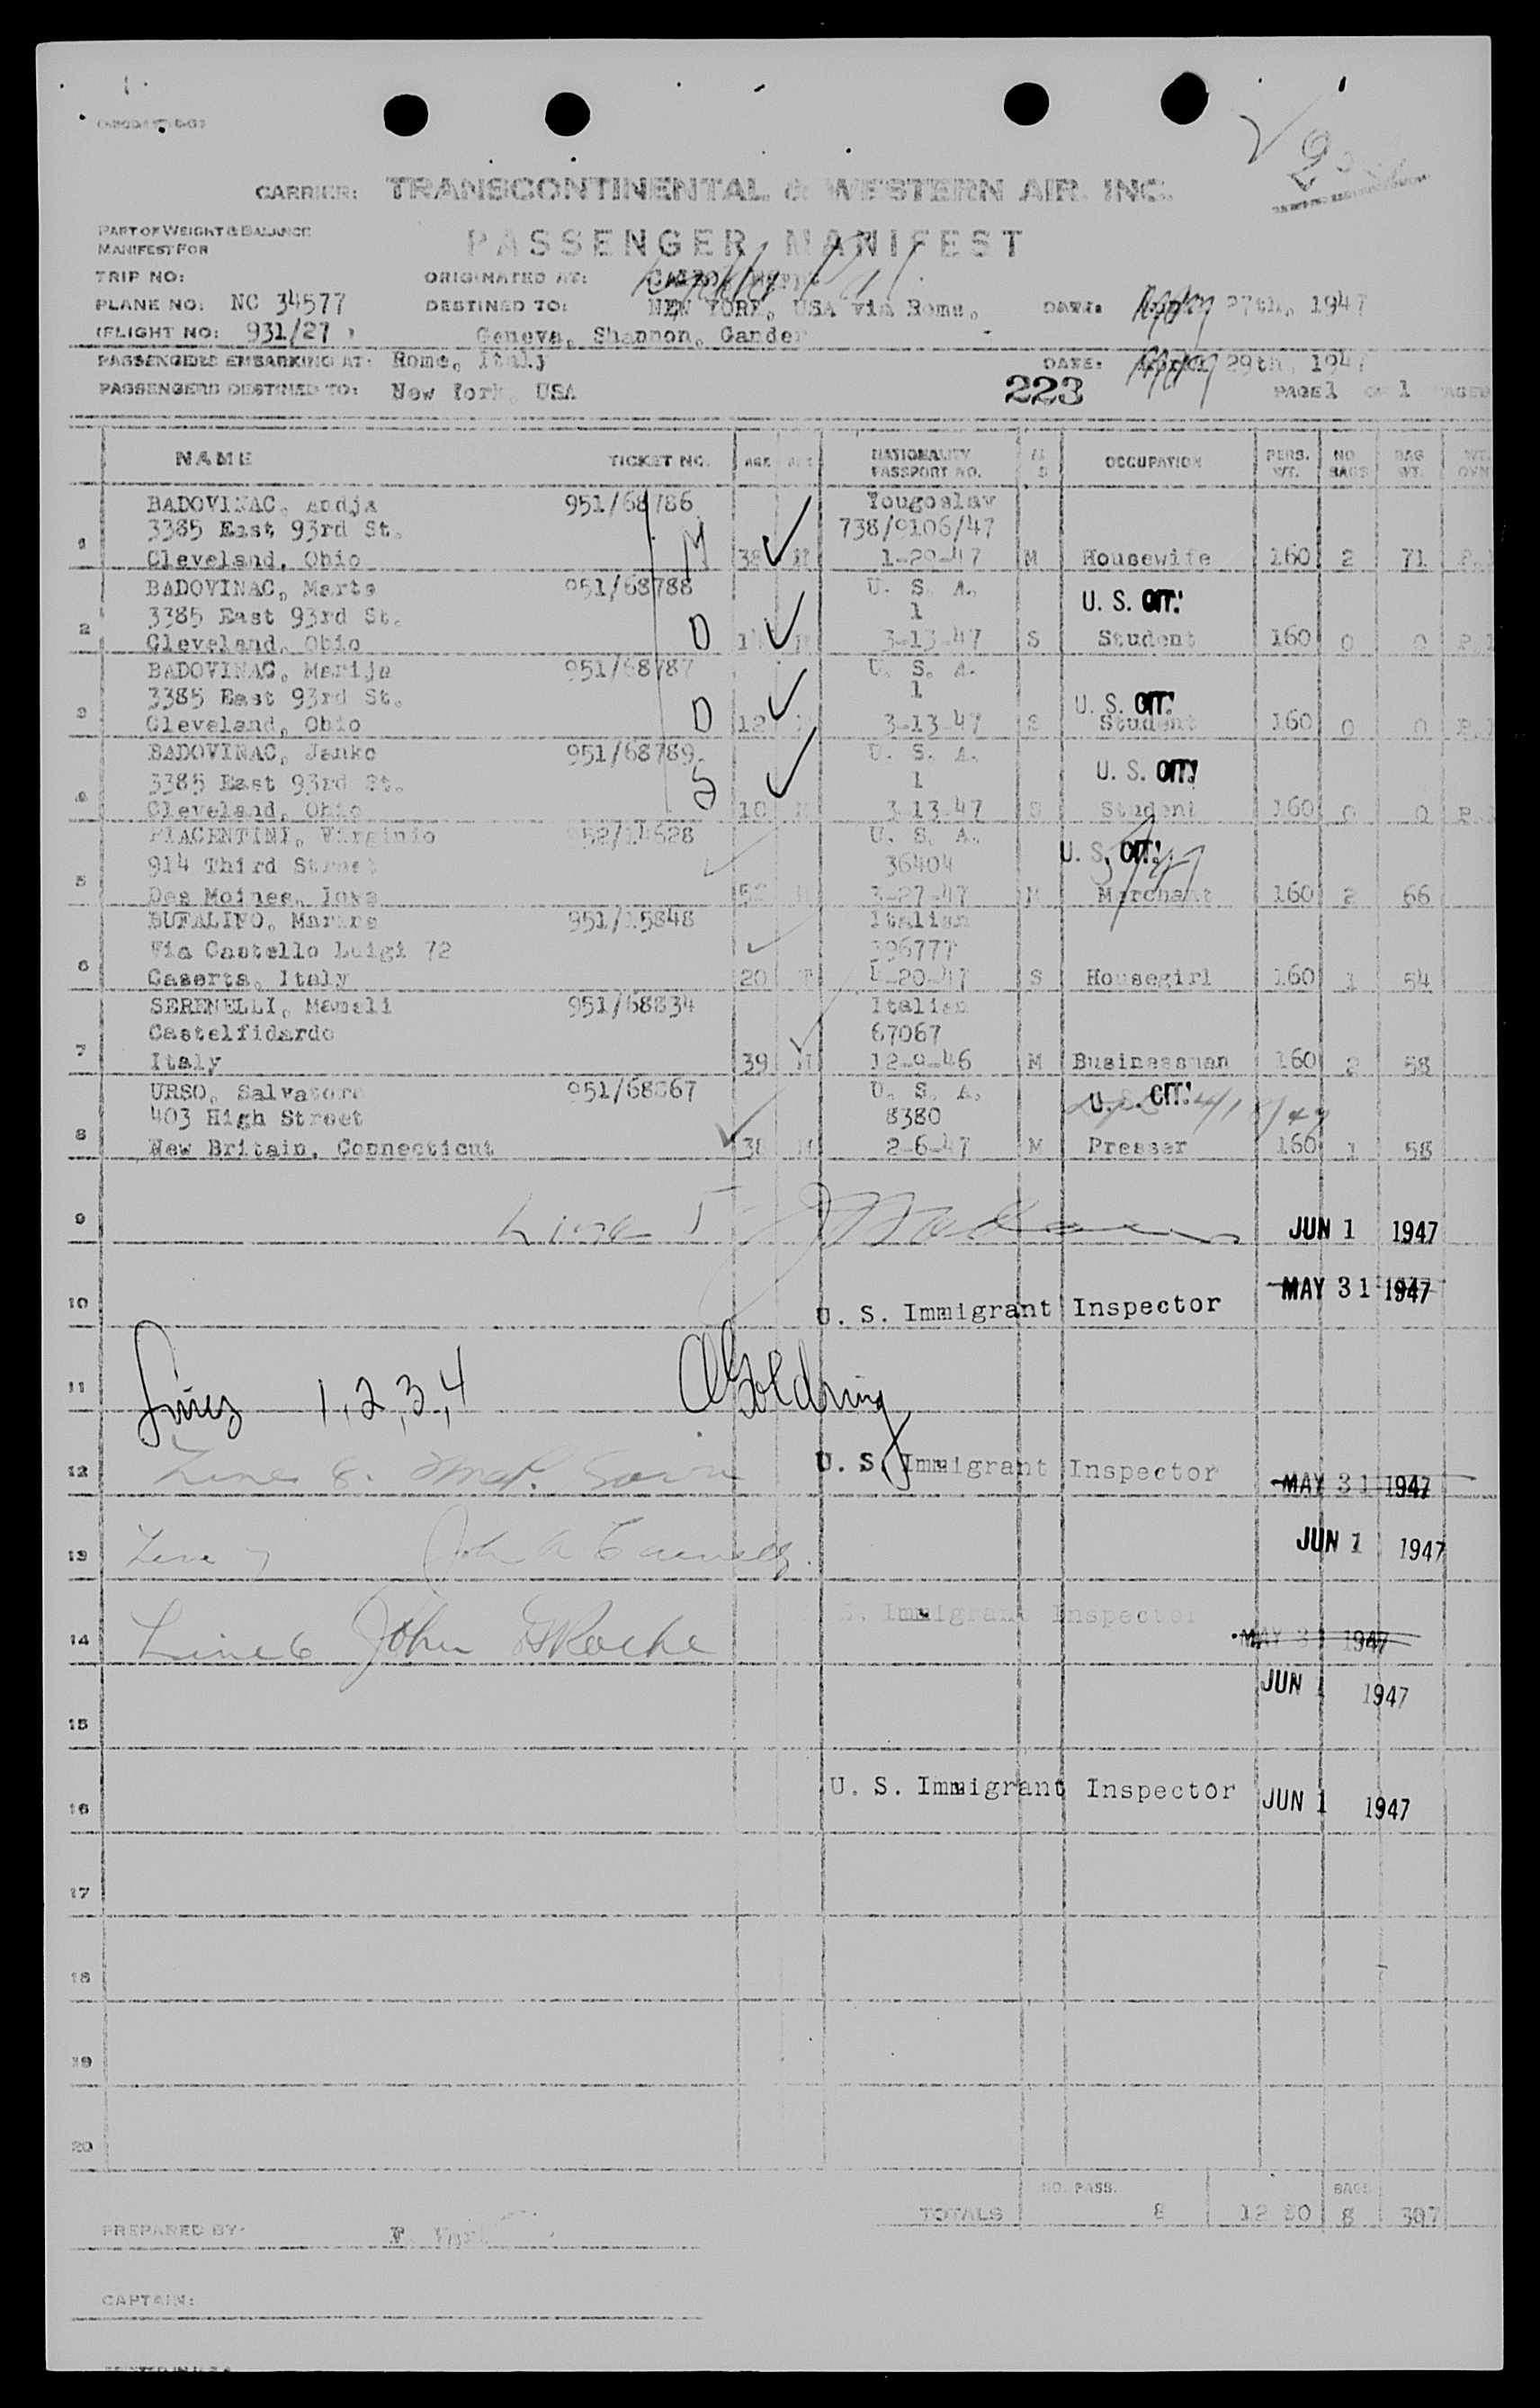 CARRIER: TRANSCONTINENTAL & WESTERN AIR. INC.
PART OF WEIGHT & BALANCE
MANIFEST FOR
PASSENGER MANIFEST
TRIP NO:
ORIGINATED AT:
PLANE NO: NC 34577
DESTINED TO: NEW YORK, USA via Rome,
DATE: May 27th, 1947
FLIGHT NO: 931/27
Geneva, Shannon, Gander
PASSENGERS EMBARKING AT: Rome, Italy
DATE: May 29th, 1947
PASSENGERS DESTINED TO: New York, USA
223
PAGE 1 OF 1 PAGES
NAME TICKET NO. AGE NATIONALITY PASSPORT NO. M S OCCUPATION PERS. WT. NO. BAGS BAG WT.
BADOVINAC, Andja 951/68786 Yougoslav
3385 East 93rd St. M 738/9106/47
1 Cleveland, Ohio 1-29-47 M Housewife 160 2 71
BADOVINAC, Marta 951/68788 U. S. A.
3385 East 93rd St. 1 U. S. CIT.
2 Cleveland, Ohio D 3-13-47 S Student 160 0 0
BADOVINAC, Marija 951/68787 U. S. A.
3385 East 93rd St. 1 U. S. CIT.
3 Cleveland, Ohio D 12 3-13-47 S Student 160 0 0
BADOVINAC, Janko 951/68789 U. S. A.
3385 East 93rd St. S 1 U. S. CIT.
4 Cleveland, Ohio 10 3-13-47 S Student 160 0 0
PIACENTINI, Virginio 952/14628 U. S. A.
914 Third Street 36404 U. S. CIT.
5 Des Moines, Iowa 52 3-27-47 M Merchant 160 2 66
BUFALINO, 951/15848 Italian
Via Castello Luigi 72 396777
6 Caserta, Italy 20 F 4-20-47 S Housegirl 160 1 54
SERENELLI, 951/68834 Italian
Castelfidardo 67067
7 Italy 39 M 12-9-46 M Businessman 160 2 58
URSO, Salvatore 951/68867 U. S. A. U. S. CIT.
403 High Street 8380
8 New Britain, Connecticut 38 M 2-6-47 M Presser 160 1 58
9 Line 5 JUN 1 1947
10 U. S. Immigrant Inspector MAY 31 1947
11 Lines 1,2,3,4 Goldring
12 Line 8. U. S. Immigrant Inspector MAY 31 1947
13 Line 7 John A JUN 1 1947
S. Immigrant Inspector
14 Line 6 John Roche MAY 31 1947
JUN 1 1947
15
16 U. S. Immigrant Inspector JUN 1 1947
17
18
19
20
NO. PASS. BAGS
TOTALS 8 1280 8 307
PREPARED BY: F.
CAPTAIN: